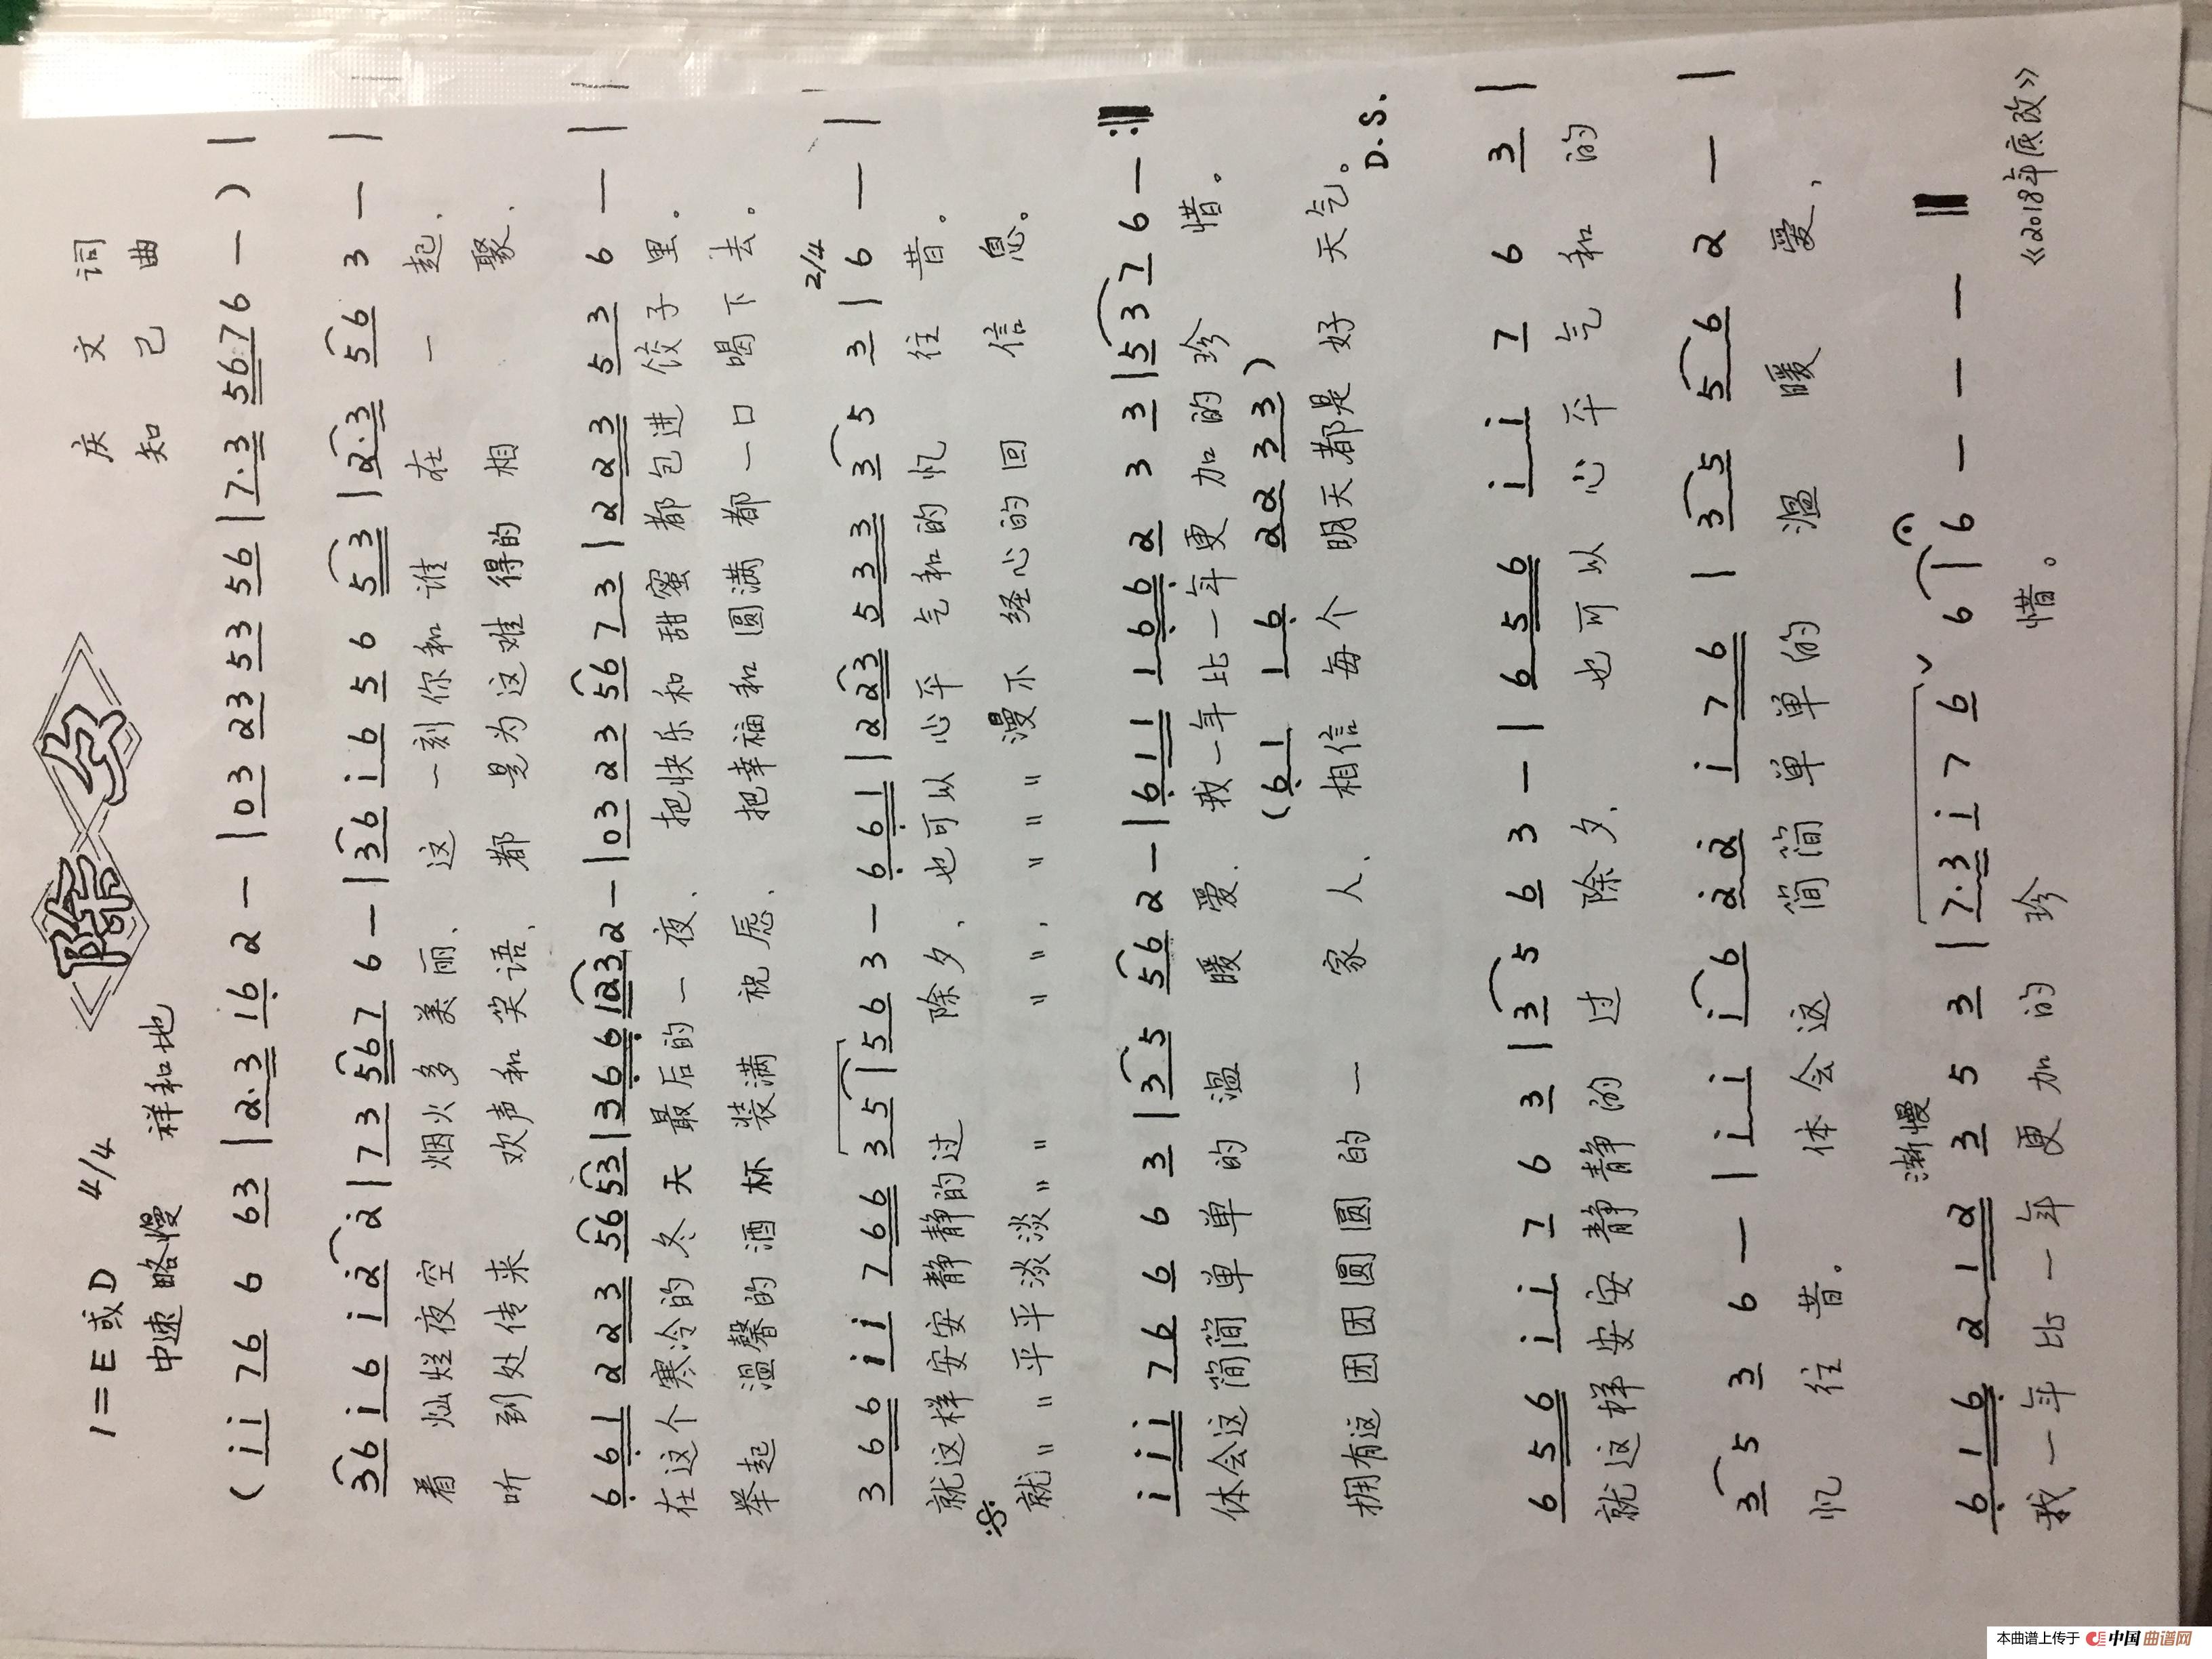 除夕
1=E或D 4/4
中速 略慢 祥和地
庆文 词
知己 曲
( i i 7 6 6 6 3 | 2· 3 1 6 2 — | 0 3 2 3 5 3 5 6 | 7· 3 5 6 7 6 — ) |
3 6 i 6 i 2 2 | 7 3 5 6 7 6 — | 3 6 i 6 5 6 5 3 | 2· 3 5 6 3 — |
看 灿烂夜空 烟火多美丽、 这一刻你和谁 在一起、
听 到处传来 欢声和笑语、 都是为这难得的 相聚、
6 6 1 2 2 3 5 6 5 3 | 3 6 6 1 2 3 2 — | 0 3 2 3 5 6 7 3 | 2 2 3 5 3 6 — |
在这个寒冷的冬天 最后的一夜、 把快乐和甜蜜 都包进饺子里。
举起 温馨的酒杯 装满祝愿、 把幸福和圆满 都一口喝下去。
2/4
3 6 6 i i 7 6 6 3 5 | 5 6 3 — 6 6 1 | 2 2 3 5 3 3 3 5 3 | 6 — |
就这样安安静静的过 除夕、也可以 心平气和的忆往昔。
就〃〃平平淡淡〃〃 〃〃、〃〃〃 漫不经心的回信息。
i i i 7 6 6 6 3 | 3· 5 5 6 2 — | 6 1 1 1 6 6 2 3 3 | 5 3 7 6 — :‖
体会这简简单单的 温暖爱、 我一年比一年更加的珍惜。
( 6 1 1 6 2 2 3 3 )
拥有这团团圆圆的一家人、 相信每个明天都是好天气。
D.S.
6 5 6 i i 7 6 3 | 3 5 6 3 — | 6 5 6 i i 7 6 3 |
就这样安安静静的过除夕、 也可以心平气和的
3 5 3 6 — | i i i 6 2 2 i 7 6 | 3 5 5 6 2 — |
忆往昔。 体会这简简单单的温暖爱、
渐慢
6 1 6 2 1 2 3 5 3 | 7· 3 i 7 6 ∨ 6 | 6 — — — ‖
我一年比一年更加的珍惜。
《2018年底改》
本曲谱上传于 中国曲谱网